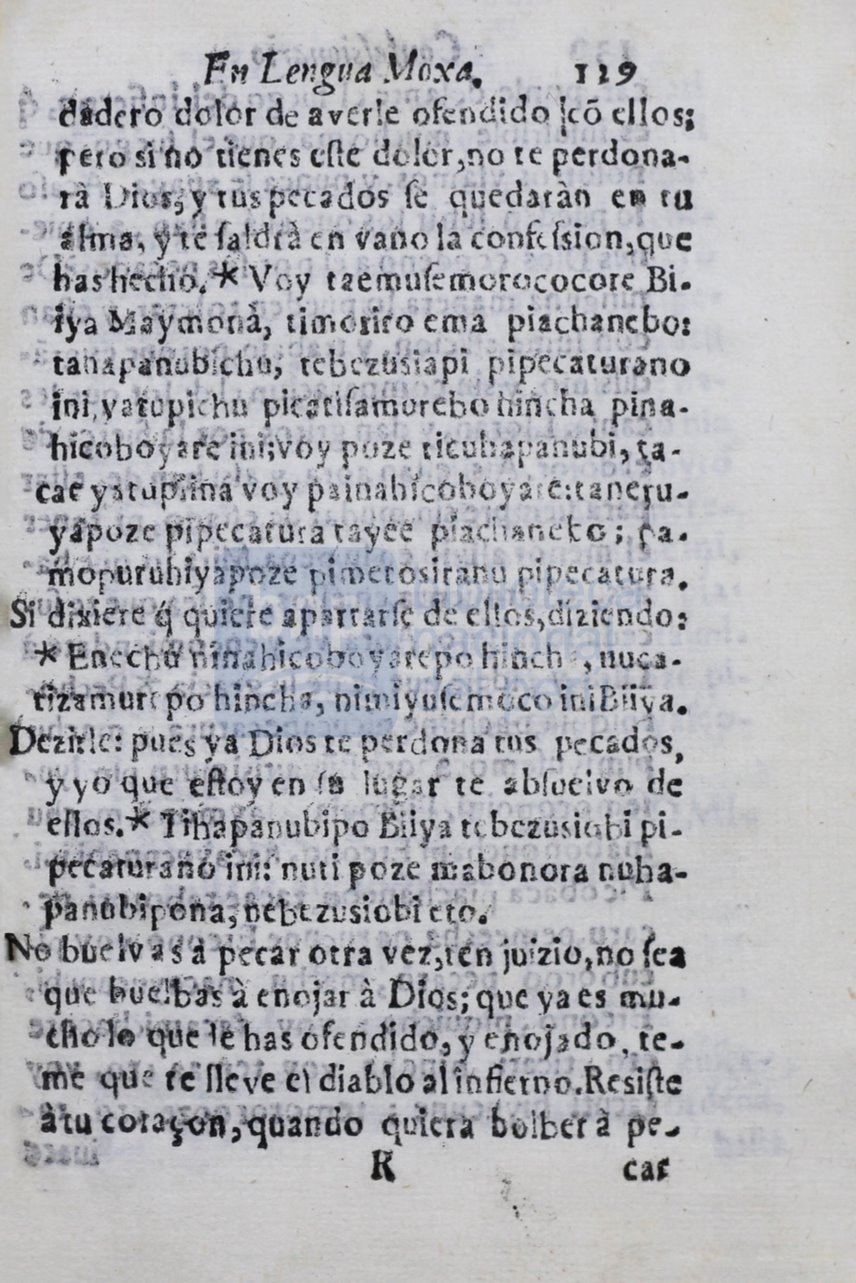 En Lengua Moxa. 129
dadero dolor de averle ofendido cõ ellos;
pero si no tienes este dolor, no te perdona-
rà Dios, y tus pecados se quedaràn en tu
alma, y te saldrà en vano la confession, que
has hecho. * Voy taemusemorococore Bi-
iya Maymonà, timoriro ema piachanebo:
tahapanubichu, tebezusiapi pipecaturano
ini, vatupichu picatisamurebo hincha pina-
hicoboyare ini; voy poze ticuhapanubi, ta-
cae yatupiina voy painahicoboyare: taneru-
yapoze pipecatura tayee piachanebo; ta-
mopuruhiyapoze pimerosiranu pipecatura.
Si dixiere q̃ quiere apartarse de ellos, diziendo:
* Enechu ninahicoboyarepo hinch , nuca-
tizamurepo hincha, nimiyusemoco ini Biiya.
Dezirle: pues ya Dios te perdona tus pecados,
y yo que estoy en su lugar te absuelvo de
ellos. * Tihapanubipo Biiya tebezusiobi pi-
pecaturano ini: nuti poze mabonora nuha-
panubipona, nebezusiobi eto.
No buelvas à pecar otra vez, ten juizio, no sea
que buelbas à enojar à Dios; que ya es mu-
cho lo que le has ofendido, y enojado, te-
me que te lleve el diablo al infierno. Resiste
à tu coraçon, quando quiera bolber à pe-
R car